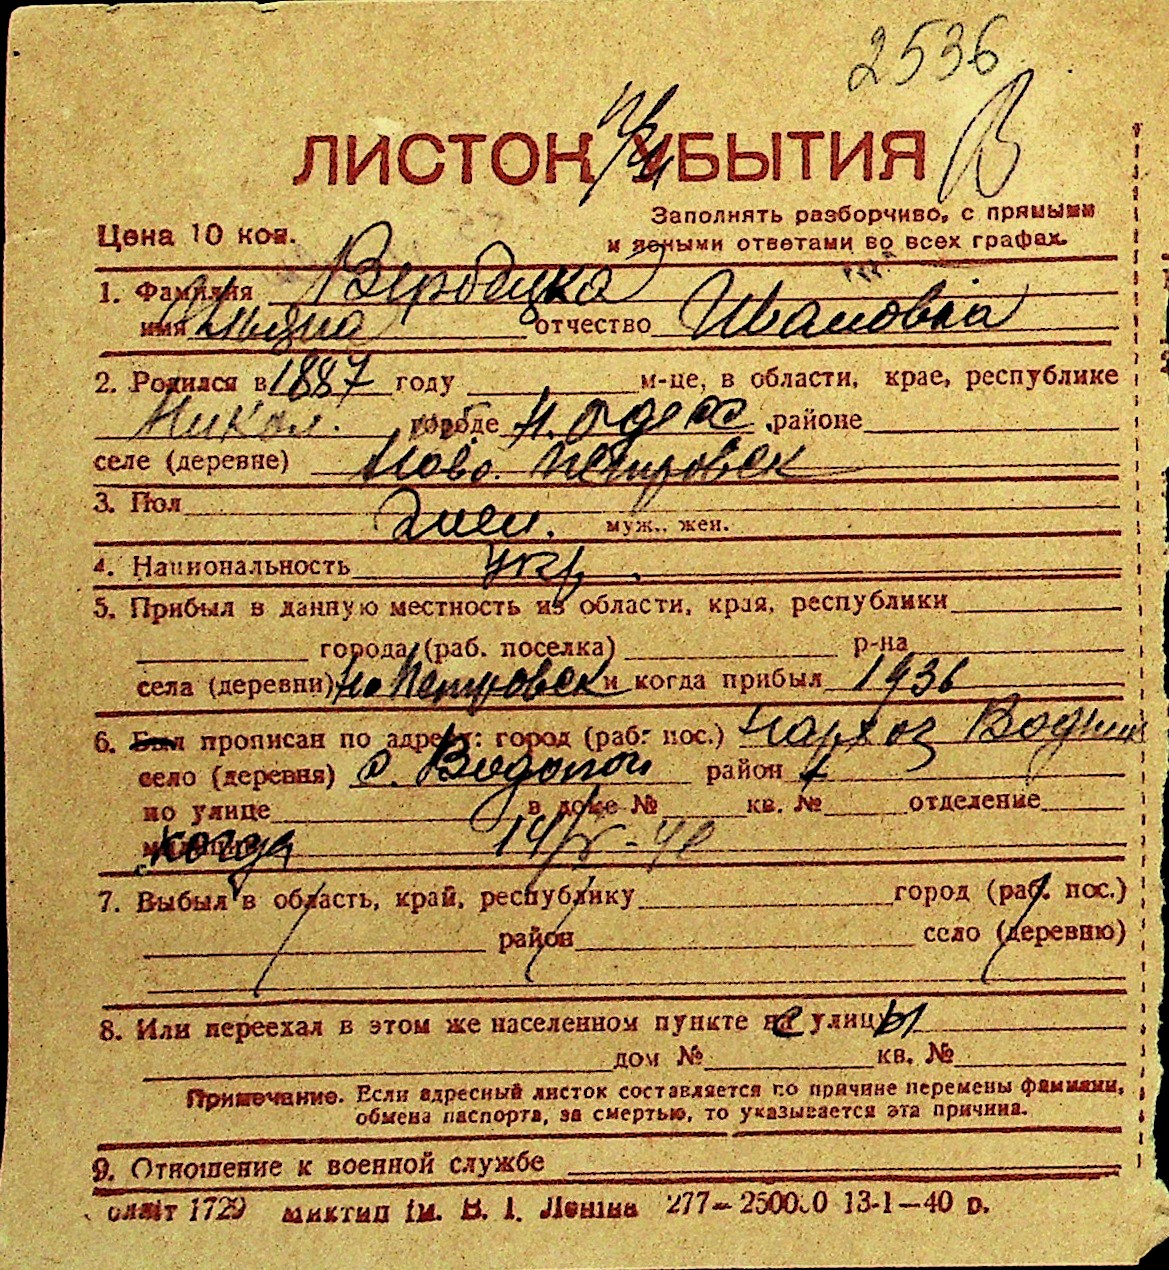 2536
ЛИСТОК УБЫТИЯ В
Заполнять разборчиво, с прямыми
Цена 10 коп. и ясными ответами во всех графах.
1. Фамилия Вербецка
имя отчество Ивановна
2. Родился в 1887 году м-це, в области, крае, республике
Никол. городе Н. Одесс районе
селе (деревне) Ново. Петровск
3. Пол жен. муж., жен.
4. Национальность укр.
5. Прибыл в данную местность из области, края, республики
города (раб. поселка) р-на
села (деревни) Но Петровск и когда прибыл 1936
6. Был прописан по адресу: город (раб. пос.) Нархоз Водник
село (деревня) с. Водопой район
по улице в доме № кв. № отделение
милиции когда 14/IV-40
7. Выбыл в область, край, республику город (раб. пос.)
район село (деревню)
8. Или переехал в этом же населенном пункте с улицы
дом № кв. №
Примечание. Если адресный листок составляется по причине перемены фамилии,
обмена паспорта, за смертью, то указывается эта причина.
9. Отношение к военной службе
облліт 1729 миктип ім. В. І. Леніна 277—250000 13-1—40 р.